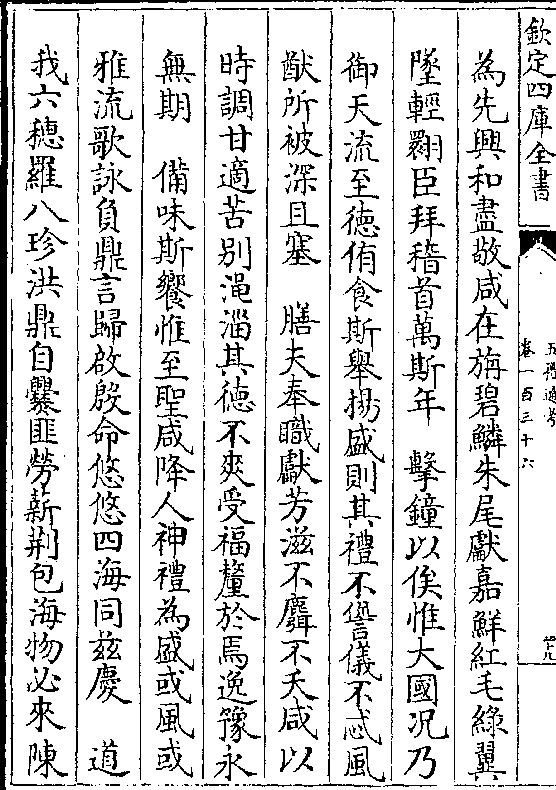 欽定四庫全書
五禮通考
卷一百三十六
為先興和盡敬咸在旃碧鱗朱尾獻嘉鮮紅毛綠翼
墜輕翾臣拜稽首萬斯年　擊鐘以俟惟大國况乃
御天流至德侑食斯舉揚盛則其禮不諐儀不忒風
猷所被深且塞　膳夫奉職獻芳滋不麛不夭咸以
時調甘適苦别渑淄其徳不爽受福釐於焉逸豫永
無期　備味斯饗惟至聖咸降人神禮為盛或風或
雅流歌詠負鼎言歸啟殷命悠悠四海同兹慶　道
我六穗羅八珍洪鼎自爨匪勞薪荆包海物必來陳